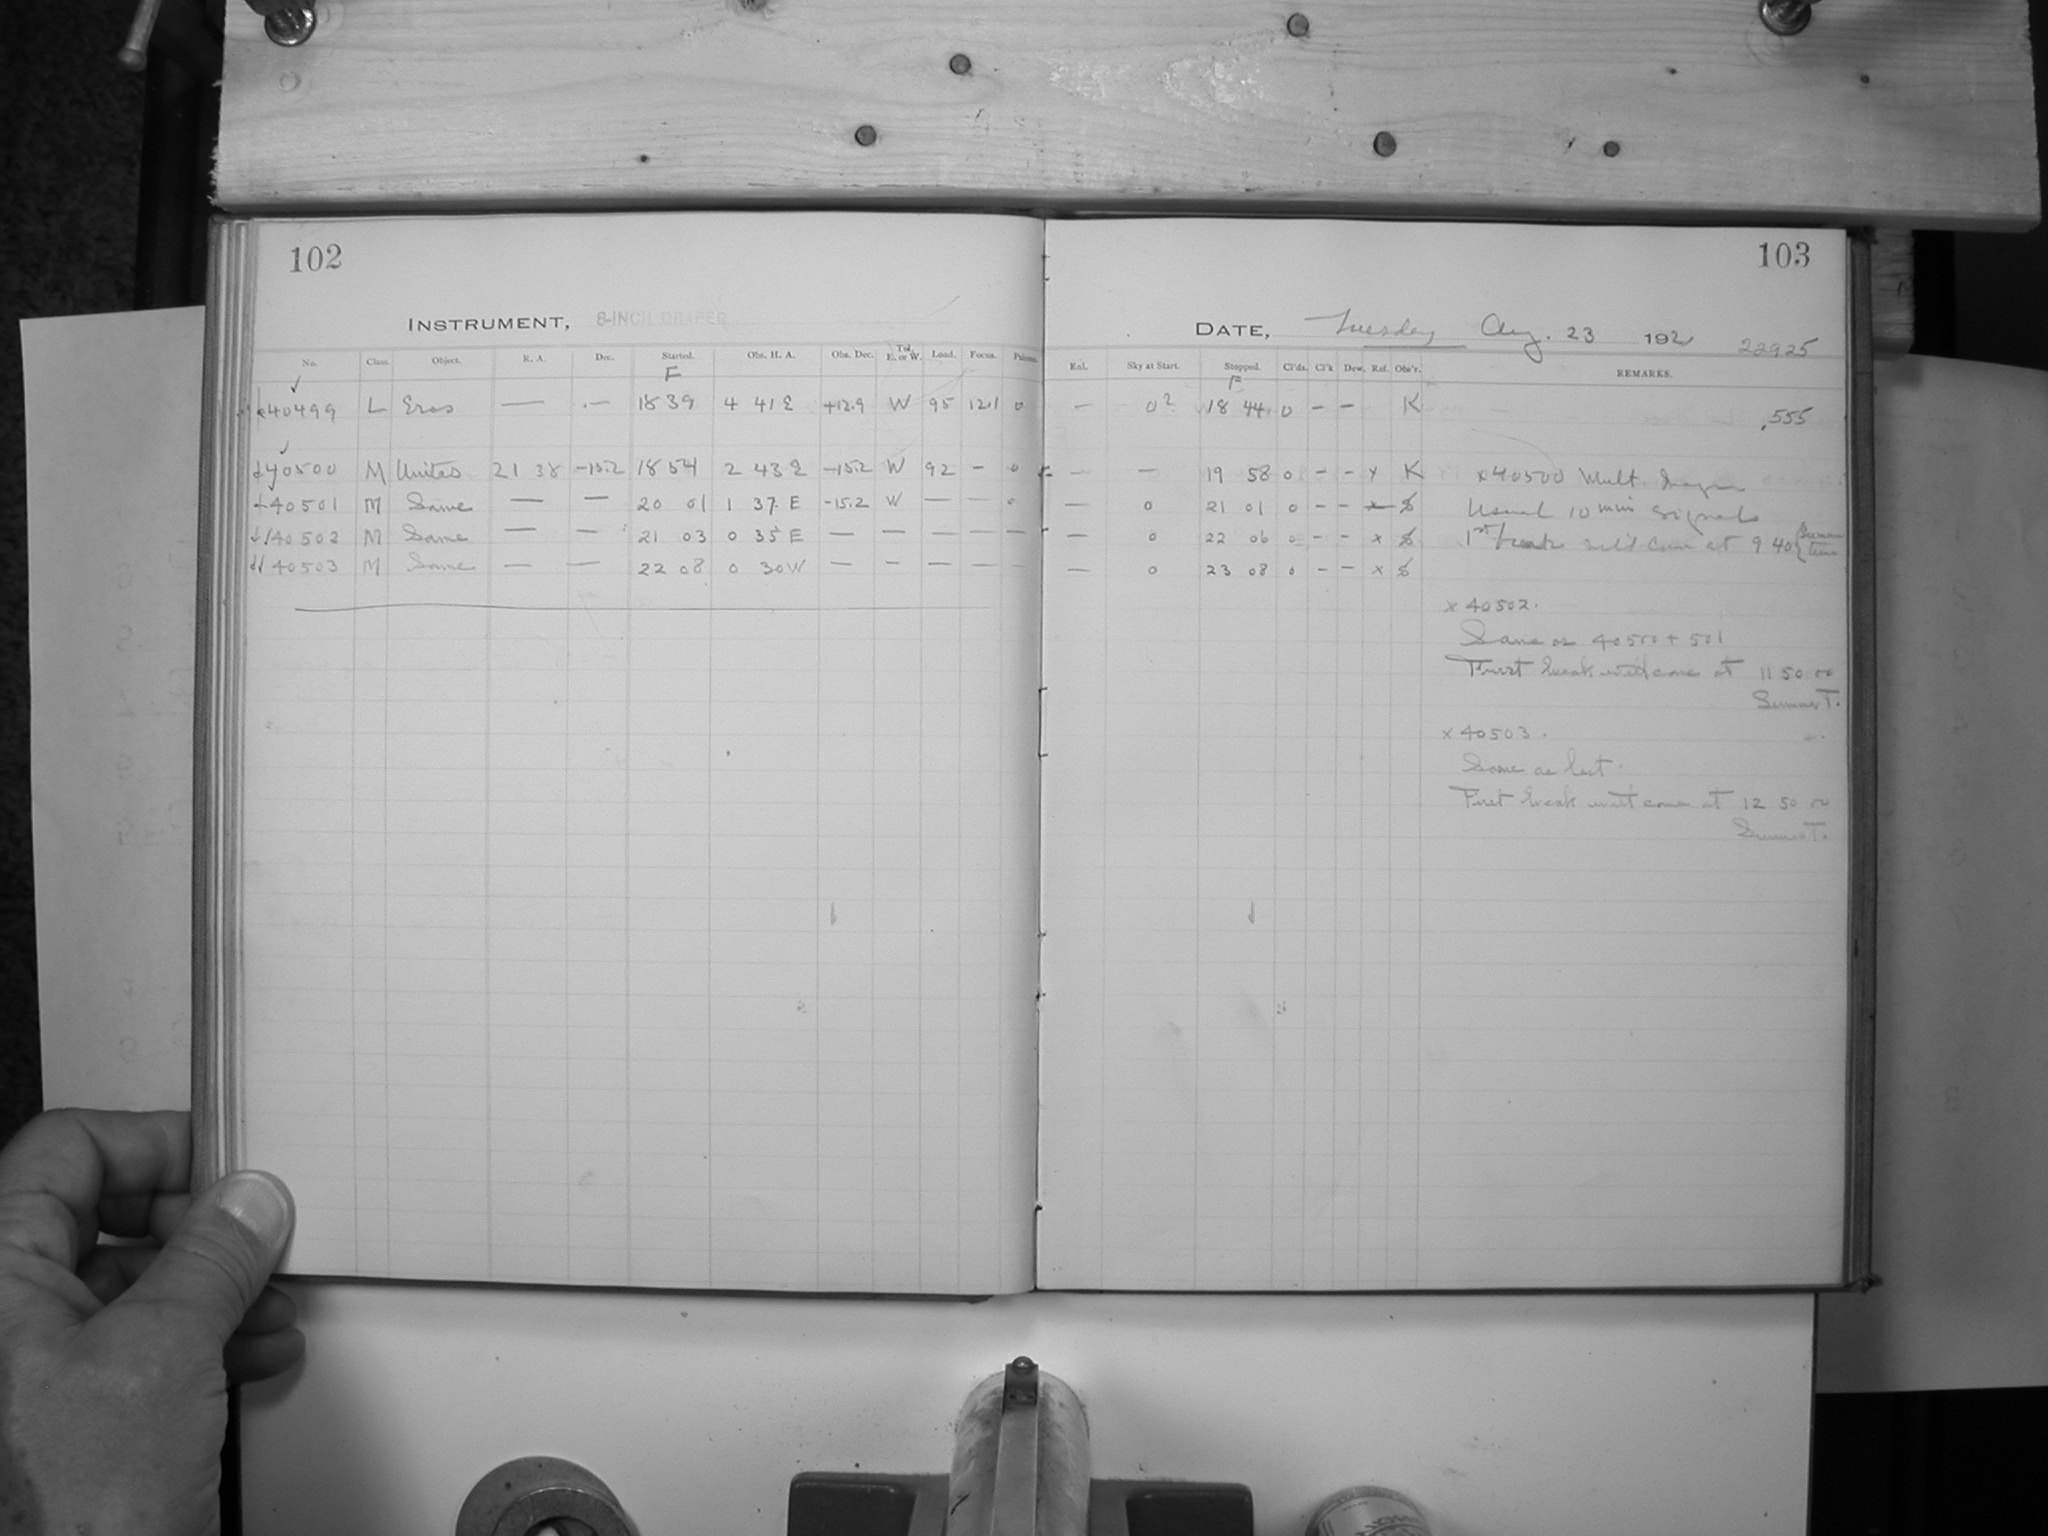 102
INSTRUMENT, 8-INCH DRAPER
No. Class. Object. R. A. Dec. Started. Obs. H. A. Obs. Dec. Tel. E. or W. Load. Focus.
F
40499 L Eros — — 18 39 4 41 E +12.9 W 95 12.1 0
40500 M Unites 21 38 -15.2 18 54 2 43 E -15.2 W 92 - 0
40501 M Same — — 20 01 1 37 E -15.2 W — — 0
40502 M Same — — 21 03 0 35 E — — — — —
40503 M Same — — 22 08 0 30 W — — — — —
103
DATE, Tuesday Aug. 23 1921 22925
Enl. Sky at Start. Stopped. Cl'ds. Cl'k Dew. Ref. Obs'r. REMARKS.
F
— 0? 18 44 0 - - K .555
— — 19 58 0 - - x K x 40500 Mult.
— 0 21 01 0 - - x Usual 10 min signals
— 0 22 06 0 - - x 1st break will come at 9 40 { Summer time
— 0 23 08 0 - - x
x 40502.
Same as 40500 + 501
First break will come at 11 50 00
Summer T.
x 40503.
Same as last.
First break will come at 12 50 00
Summer T.